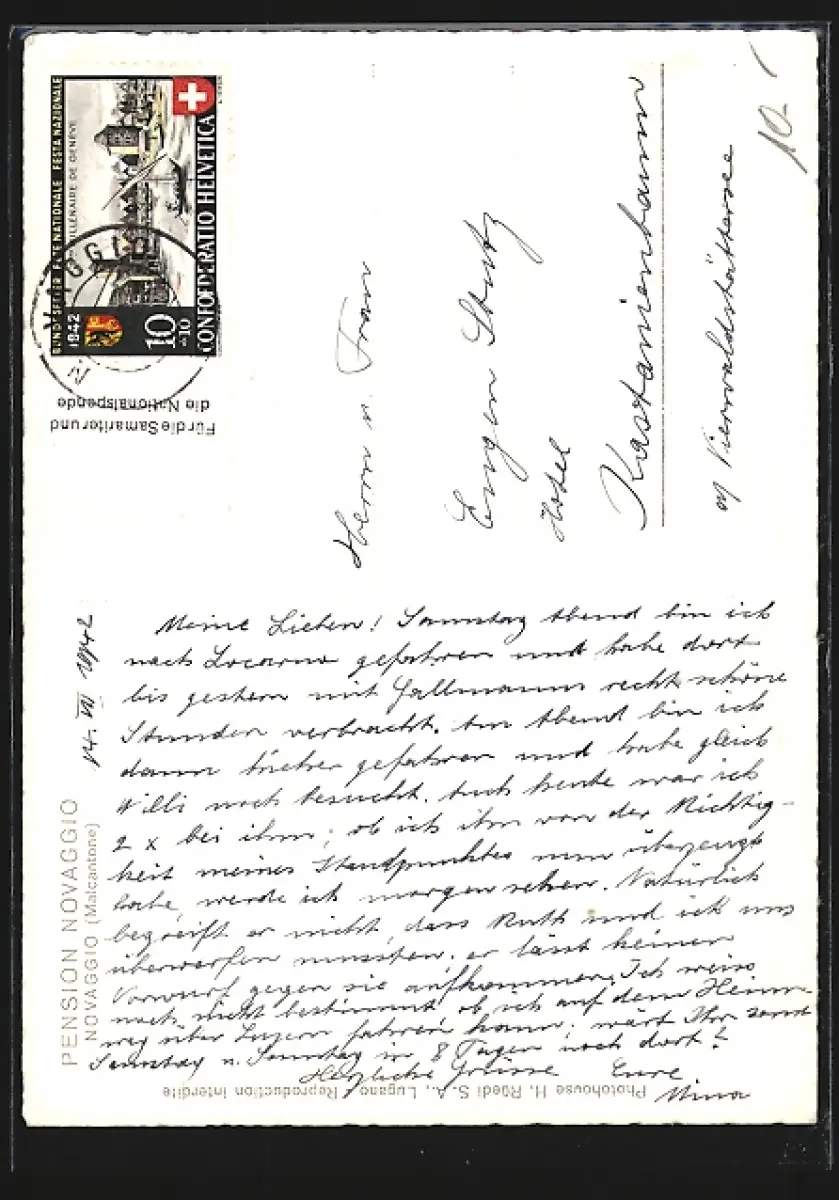 BUNDESFEIER FETE NATIONALE FESTA NAZIONALE
1942
MILLENAIRE DE GENÈVE
10
+10
CONFOEDERATIO HELVETICA
Für die Samariter und
die Nationalspende
10.-
Herrn u. Frau
Eugen Stutz
Hotel
Kastanienbaum
a/ Vierwaldstättersee
14. VII 1942
Meine Lieben! Sonntag Abend bin ich
nach Locarno gefahren und habe dort
bis gestern mit Fallmanns recht schöne
Stunden verbracht. Am Abend bin ich
dann hieher gefahren und habe gleich
Willi noch besucht. Auch heute war ich
2 x bei ihm; ob ich ihn von der Richtig-
keit meines Standpunktes nun überzeugt
habe, werde ich morgen sehen. Natürlich
begreift er nicht, dass Ruth und ich uns
überwerfen mussten; er lässt keinen
Vorwurf gegen sie aufkommen. Ich weiss
noch nicht bestimmt, ob ich auf dem Heim-
weg über Luzern fahren kann; wärt Ihr sonst
Samstag u. Sonntag in 8 Tagen noch dort?
Herzliche Grüsse Eure
Nina
PENSION NOVAGGIO
NOVAGGIO (Malcantone)
Photohouse H. Rüedi S.A., Lugano - Reproduction interdite